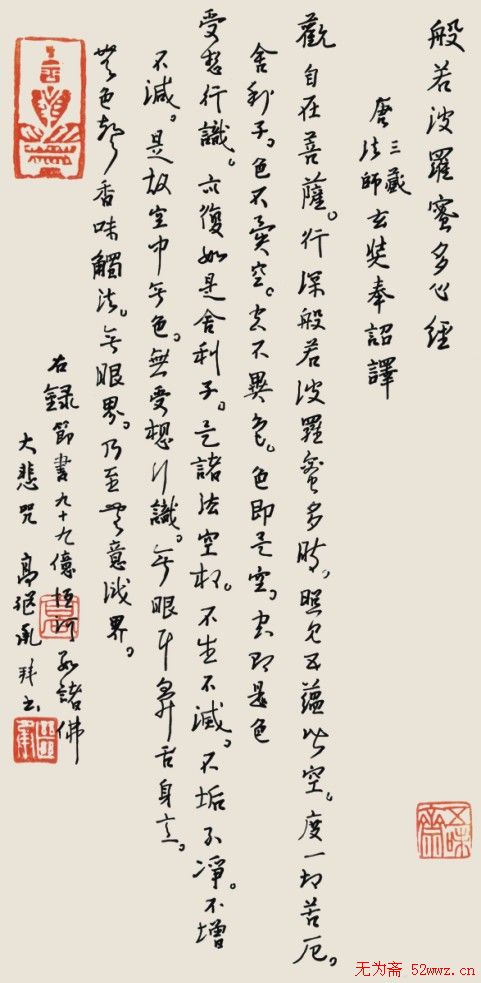 般若波羅蜜多心經
唐三藏法師玄奘奉詔譯
觀自在菩薩。行深般若波羅蜜多時。照見五蘊皆空。度一切苦厄。
舍利子。色不異空。空不異色。色即是空。空即是色
受想行識。亦復如是舍利子。是諸法空相。不生不滅。不垢不凈。不增
不減。是故空中無色。無受想行識。無眼耳鼻舌身意。
無色聲香味觸法。無眼界。乃至無意識界。
右錄節書九十九億恆河沙諸佛
大悲咒 高繼承拜书
高
五味齋
无为斋 52wwz.cn